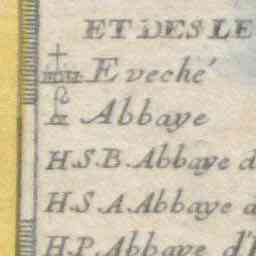 ET DES LE
Eveché
Abbaye
H.S.B. Abbaye d
H.S.A. Abbaye d
H.P. Abbaye d'